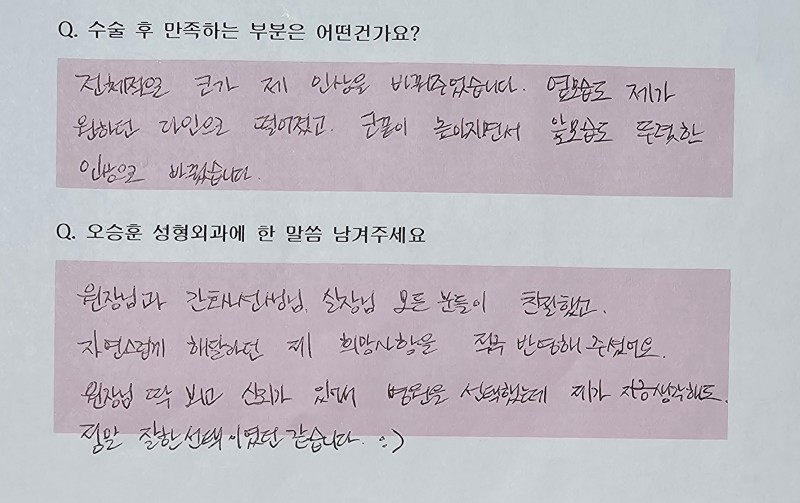 Q. 수술 후 만족하는 부분은 어떤건가요?
전체적으로 코가 제 인상을 바꿔주었습니다. 옆모습도 제가
원하던 라인으로 떨어졌고. 코끝이 높아지면서 앞모습도 뚜렷한
인상으로 바뀌었습니다.
Q. 오승훈 성형외과에 한 말씀 남겨주세요
원장님과 간호사선생님, 실장님 모든 분들이 친절했고.
자연스럽게 해달라던 제 희망사항을 적극 반영해 주셨어요.
원장님 딱 보고 신뢰가 있어 병원을 선택했는데 제가 지금생각해도.
정말 잘한선택이였던 같습니다. :)